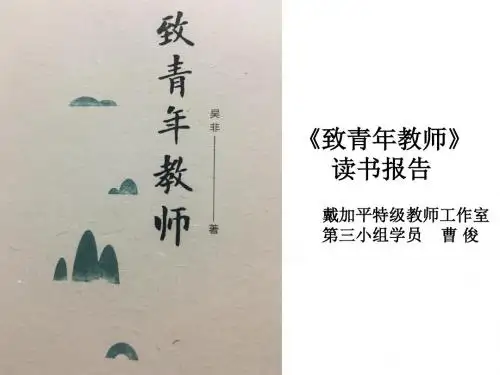 致青年教师
吴非
著
《致青年教师》
读书报告
戴加平特级教师工作室
第三小组学员 曹 俊